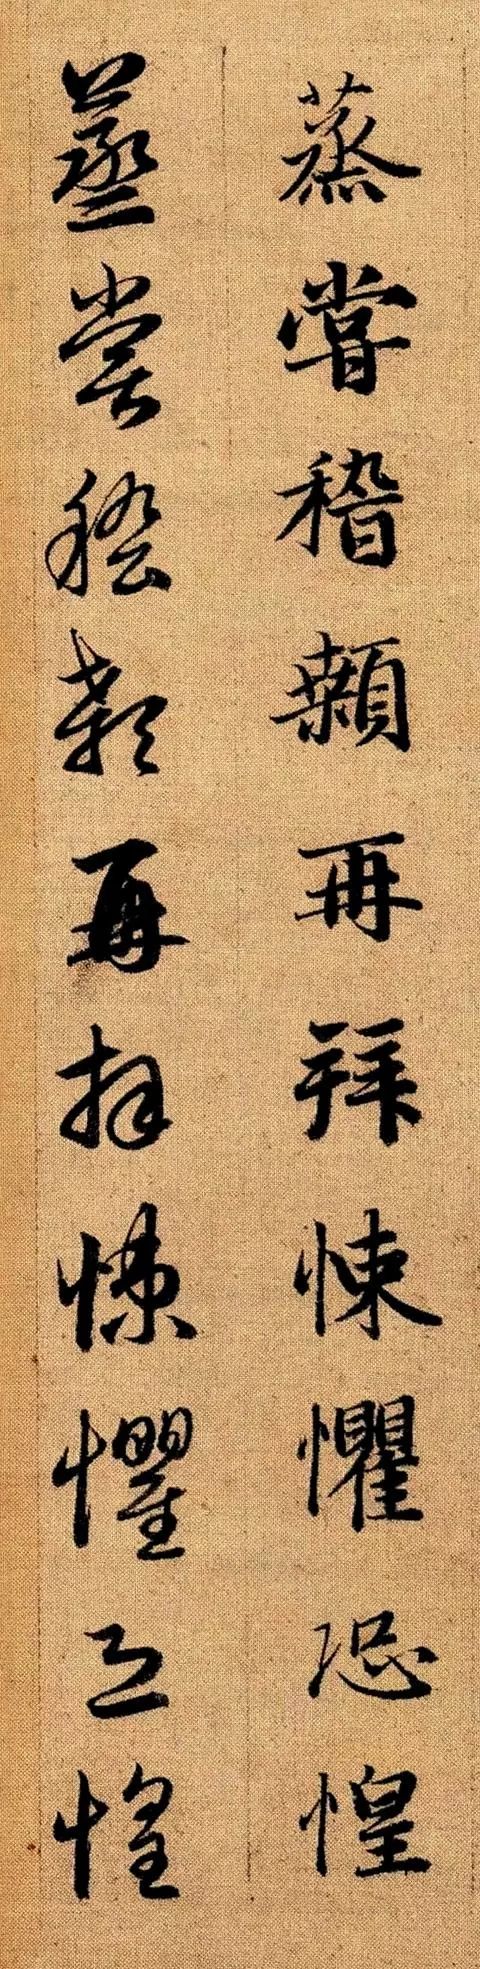 蒸嘗稽顙再拜悚懼恐惶
蒸嘗稽顙再拜悚懼恐惶